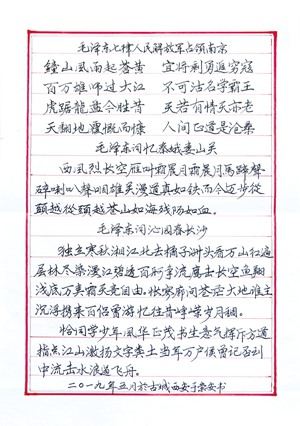 毛泽东七律人民解放军占领南京
鐘山風雨起苍黄 宜将剩勇追穷寇
百万雄师过大江 不可沽名学霸王
虎踞龍盘今胜昔 天若有情天亦老
天翻地覆慨而慷 人间正道是沧桑
毛泽东词忆秦娥娄山关
西風烈长空雁叫霜晨月霜晨月馬蹄聲
碎喇叭聲咽雄关漫道真如铁而今迈步從
頭越從頭越苍山如海残阳如血。
毛泽东词沁园春长沙
独立寒秋湘江北去橘子洲头看万山红遍
层林尽染漫江碧透百舸争流鹰击长空鱼翔
浅底万类霜天竞自由。怅寥廓问苍茫大地谁主
沉浮携来百侣曾游忆往昔峥嵘岁月稠。
恰同学少年風华正茂书生意气挥斥方遒
指点江山激扬文字粪土当年万户侯曾记否到
中流击水浪遏飞舟。
二〇一九年五月於古城西安子